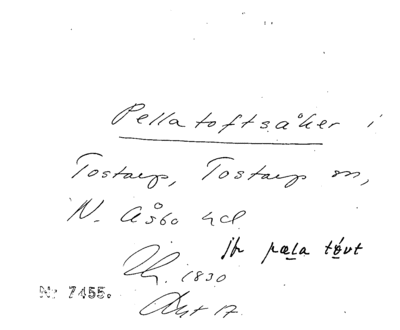 Pellatoftsåker i
Tostarp, Tostarp sn,
N. Åsbo hd
jfr pæla tovt
1830
Akt 17
Nr 7455.